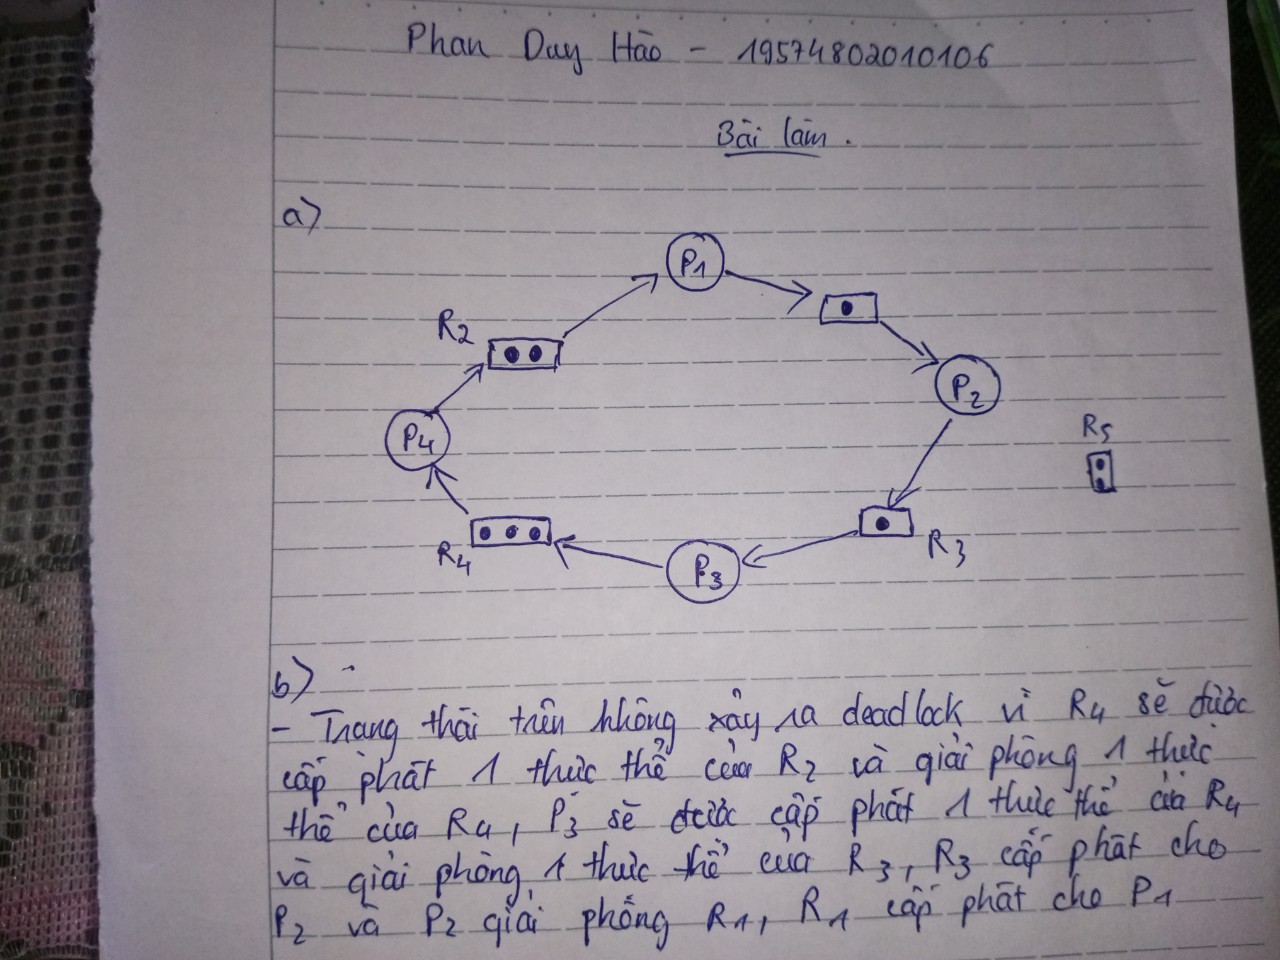 Phan Duy Hào - 19574802010106
Bài làm.
a)
P1
R2
P2
P4
R5
R4
P3
R3
b)
- Trạng thái trên không xảy ra deadlock vì R4 sẽ được
cấp phát 1 thực thể của R2 và giải phóng 1 thực
thể của R4, P3 sẽ được cấp phát 1 thực thể của R4
và giải phóng 1 thực thể của R3, R3 cấp phát cho
P2 và P2 giải phóng R1, R1 cấp phát cho P1